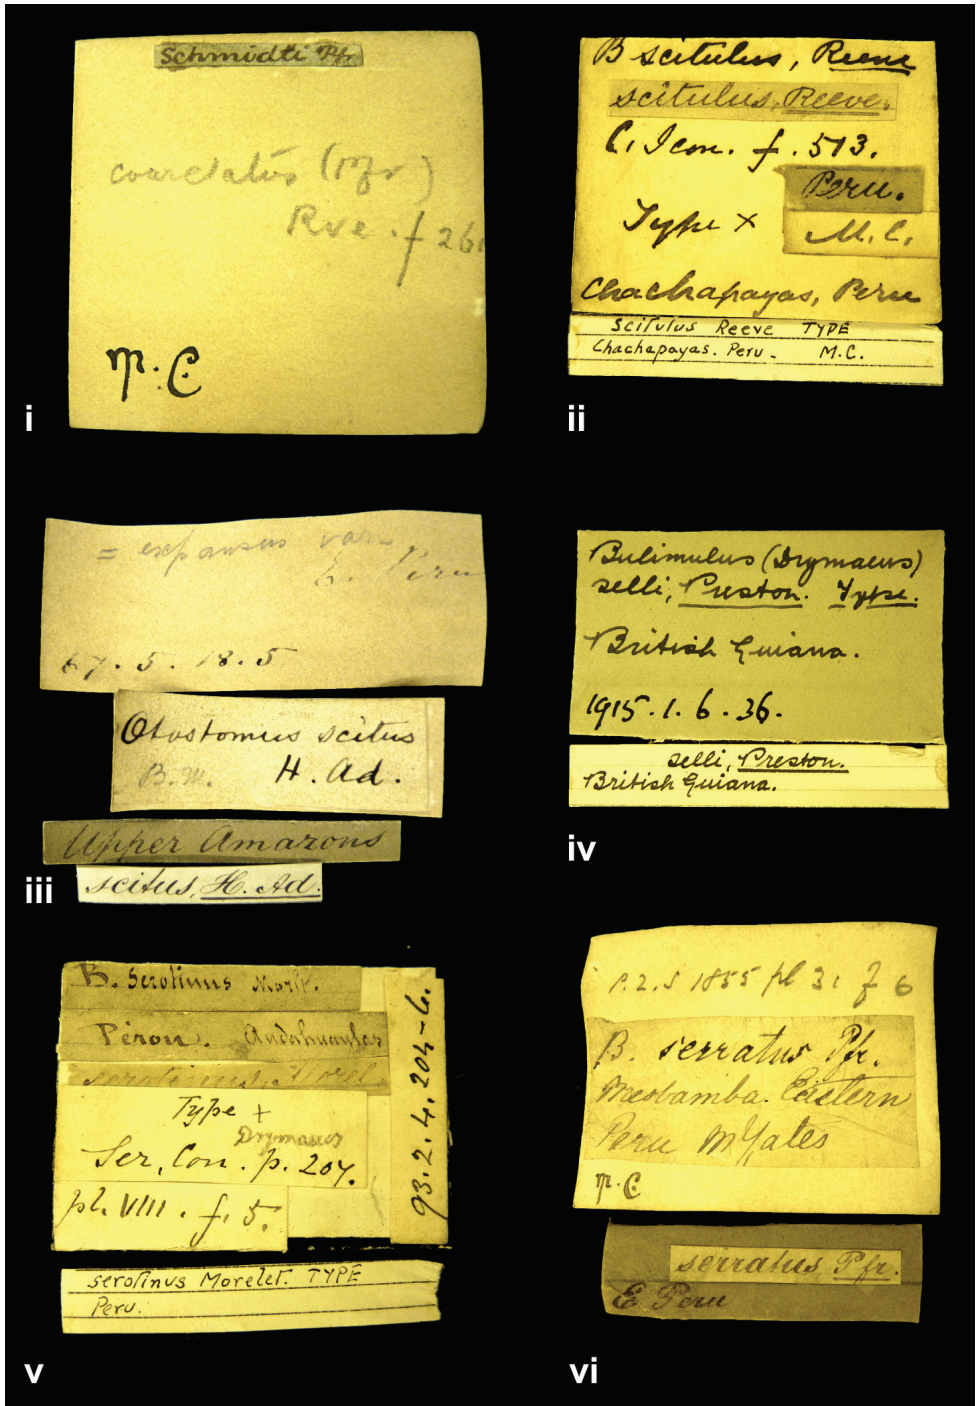 Schmidti Pfr
coarctatus (Pfr)
Rve. f 261
M.C
i
B scitulus, Reeve
scitulus, Reeve.
C. Icon. f. 513.
Peru.
Type x
M.C.
Chachapoyas, Peru
Scitulus Reeve TYPE
Chachapoyas. Peru. M.C.
ii
= expansus var
E. Peru
67.5.18.5
Otostomus scitus
B.M. H. Ad.
Upper Amazons
scitus, H. Ad.
iii
Bulimulus (Drymaeus)
selli, Preston. Type.
British Guiana.
1915.1.6.36.
selli, Preston.
British Guiana.
iv
B. Serotinus Morlt.
Pérou. Andahuaylas
serotinus, Morel.
Type +
Drymaeus
Ser. Con. p. 207.
pl. VIII. f. 5.
93.2.4.204-6.
serotinus Morelet. TYPE
Peru.
v
P.Z.S 1855 pl 31 f 6
B. serratus Pfr.
Meobamba. Eastern
Peru M Yates
M.C
serratus Pfr.
E Peru
vi